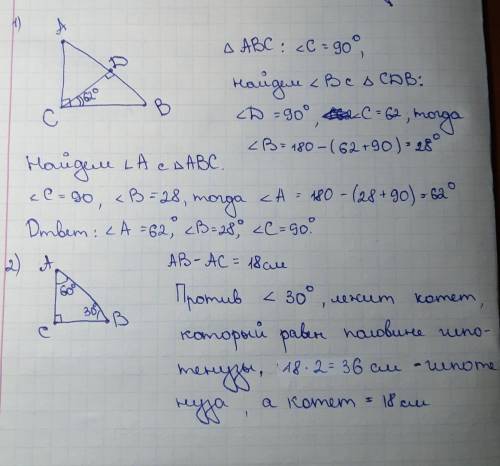 1)
A
D
62°
C
B
△ ABC : ∠C = 90°,
найдем ∠B с △ CDB:
∠D = 90°, ∠C = 62, тогда
∠B = 180 - (62 + 90) = 28°
Найдем ∠A с △ABC.
∠C = 90, ∠B = 28, тогда ∠A = 180 - (28 + 90) = 62°
Ответ: ∠A = 62°, ∠B = 28°, ∠C = 90°.
2)
A
60°
C
30°
B
AB - AC = 18 см
Против ∠ 30°, лежит катет,
который равен половине гипо-
тенузы, 18 · 2 = 36 см - гипоте
нуза, а котет = 18 см